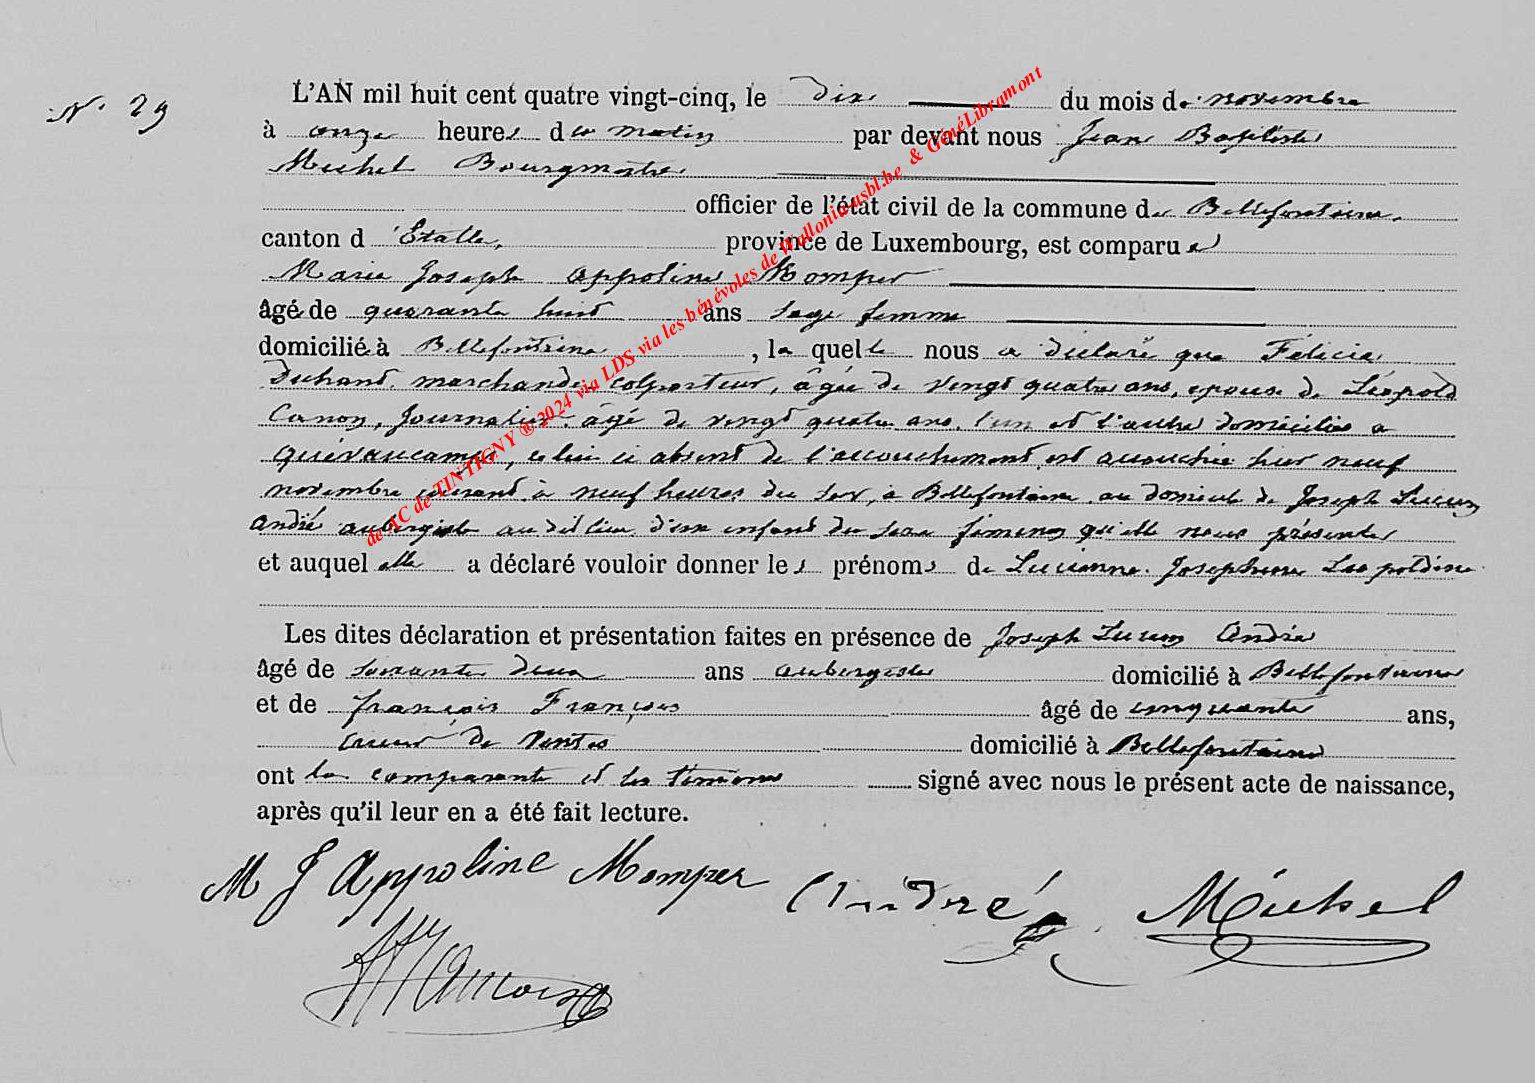 N. 29
L'AN mil huit cent quatre vingt-cinq, le dix du mois de novembre
à onze heures du matin par devant nous Jean Baptiste
Michel Bourgmestre
officier de l'état civil de la commune de Bellefontaine,
canton d'Etalle, province de Luxembourg, est comparue
Marie Joseph Appoline Momper
âgée de quarante huit ans sage femme
domiciliée à Bellefontaine, laquelle nous a déclaré que Félicie
marchande colporteur, âgée de vingt quatre ans, épouse de Léopold
Canon, Journalier, âgé de vingt quatre ans, l'un et l'autre domiciliés à
Quevaucamps, celui ci absent de l'accouchement, est accouchée hier neuf
novembre courant, à neuf heures du soir, à Bellefontaine au domicile de Joseph Lucien
André aubergiste au dit lieu d'un enfant du sexe féminin qu'elle nous présente
et auquel elle a déclaré vouloir donner les prénoms de Lucienne Josephine Leopoldine
Les dites déclaration et présentation faites en présence de Joseph Lucien André
âgé de soixante deux ans aubergiste domicilié à Bellefontaine
et de françois François âgé de cinquante ans,
crieur de ventes domicilié à Bellefontaine
ont la comparante et les témoins signé avec nous le présent acte de naissance,
après qu'il leur en a été fait lecture.
M J Appoline Momper André Michel
françois
de AC de TINTIGNY ®2024 via LDS via les bénévoles de Wallonia-asbl.be & GénéLibramont